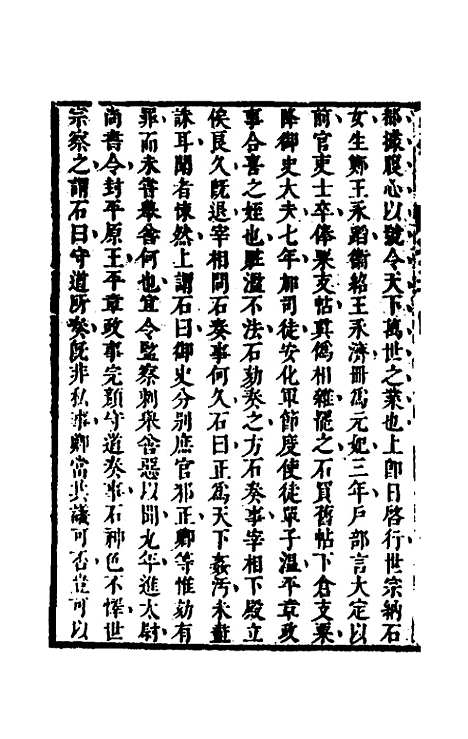 都據腹心以號令天下萬世之業也上即日啓行世宗納石
女生鄭王永蹈衞紹王永濟冊爲元妃三年戸部言大定以
前官吏士卒俸粟支帖真僞相雜罷之石買舊帖下倉支粟
降御史大夫七年加司徒安化軍節度使徒單子溫平章政
事合喜之姪也贓濫不法石劾奏之方石奏事宰相下殿立
俟良久既退宰相問石奏事何久石曰正爲天下姦汚未盡
誅耳聞者悚然上謂石曰御史分别庶官邪正卿等惟劾有
罪而未嘗舉善何也宜令監察刺舉善惡以聞九年進太尉
尚書令封平原王平章政事完顔守道奏事石神色不懌世
宗察之謂石曰守道所奏既非私事卿當共議可否豈可以